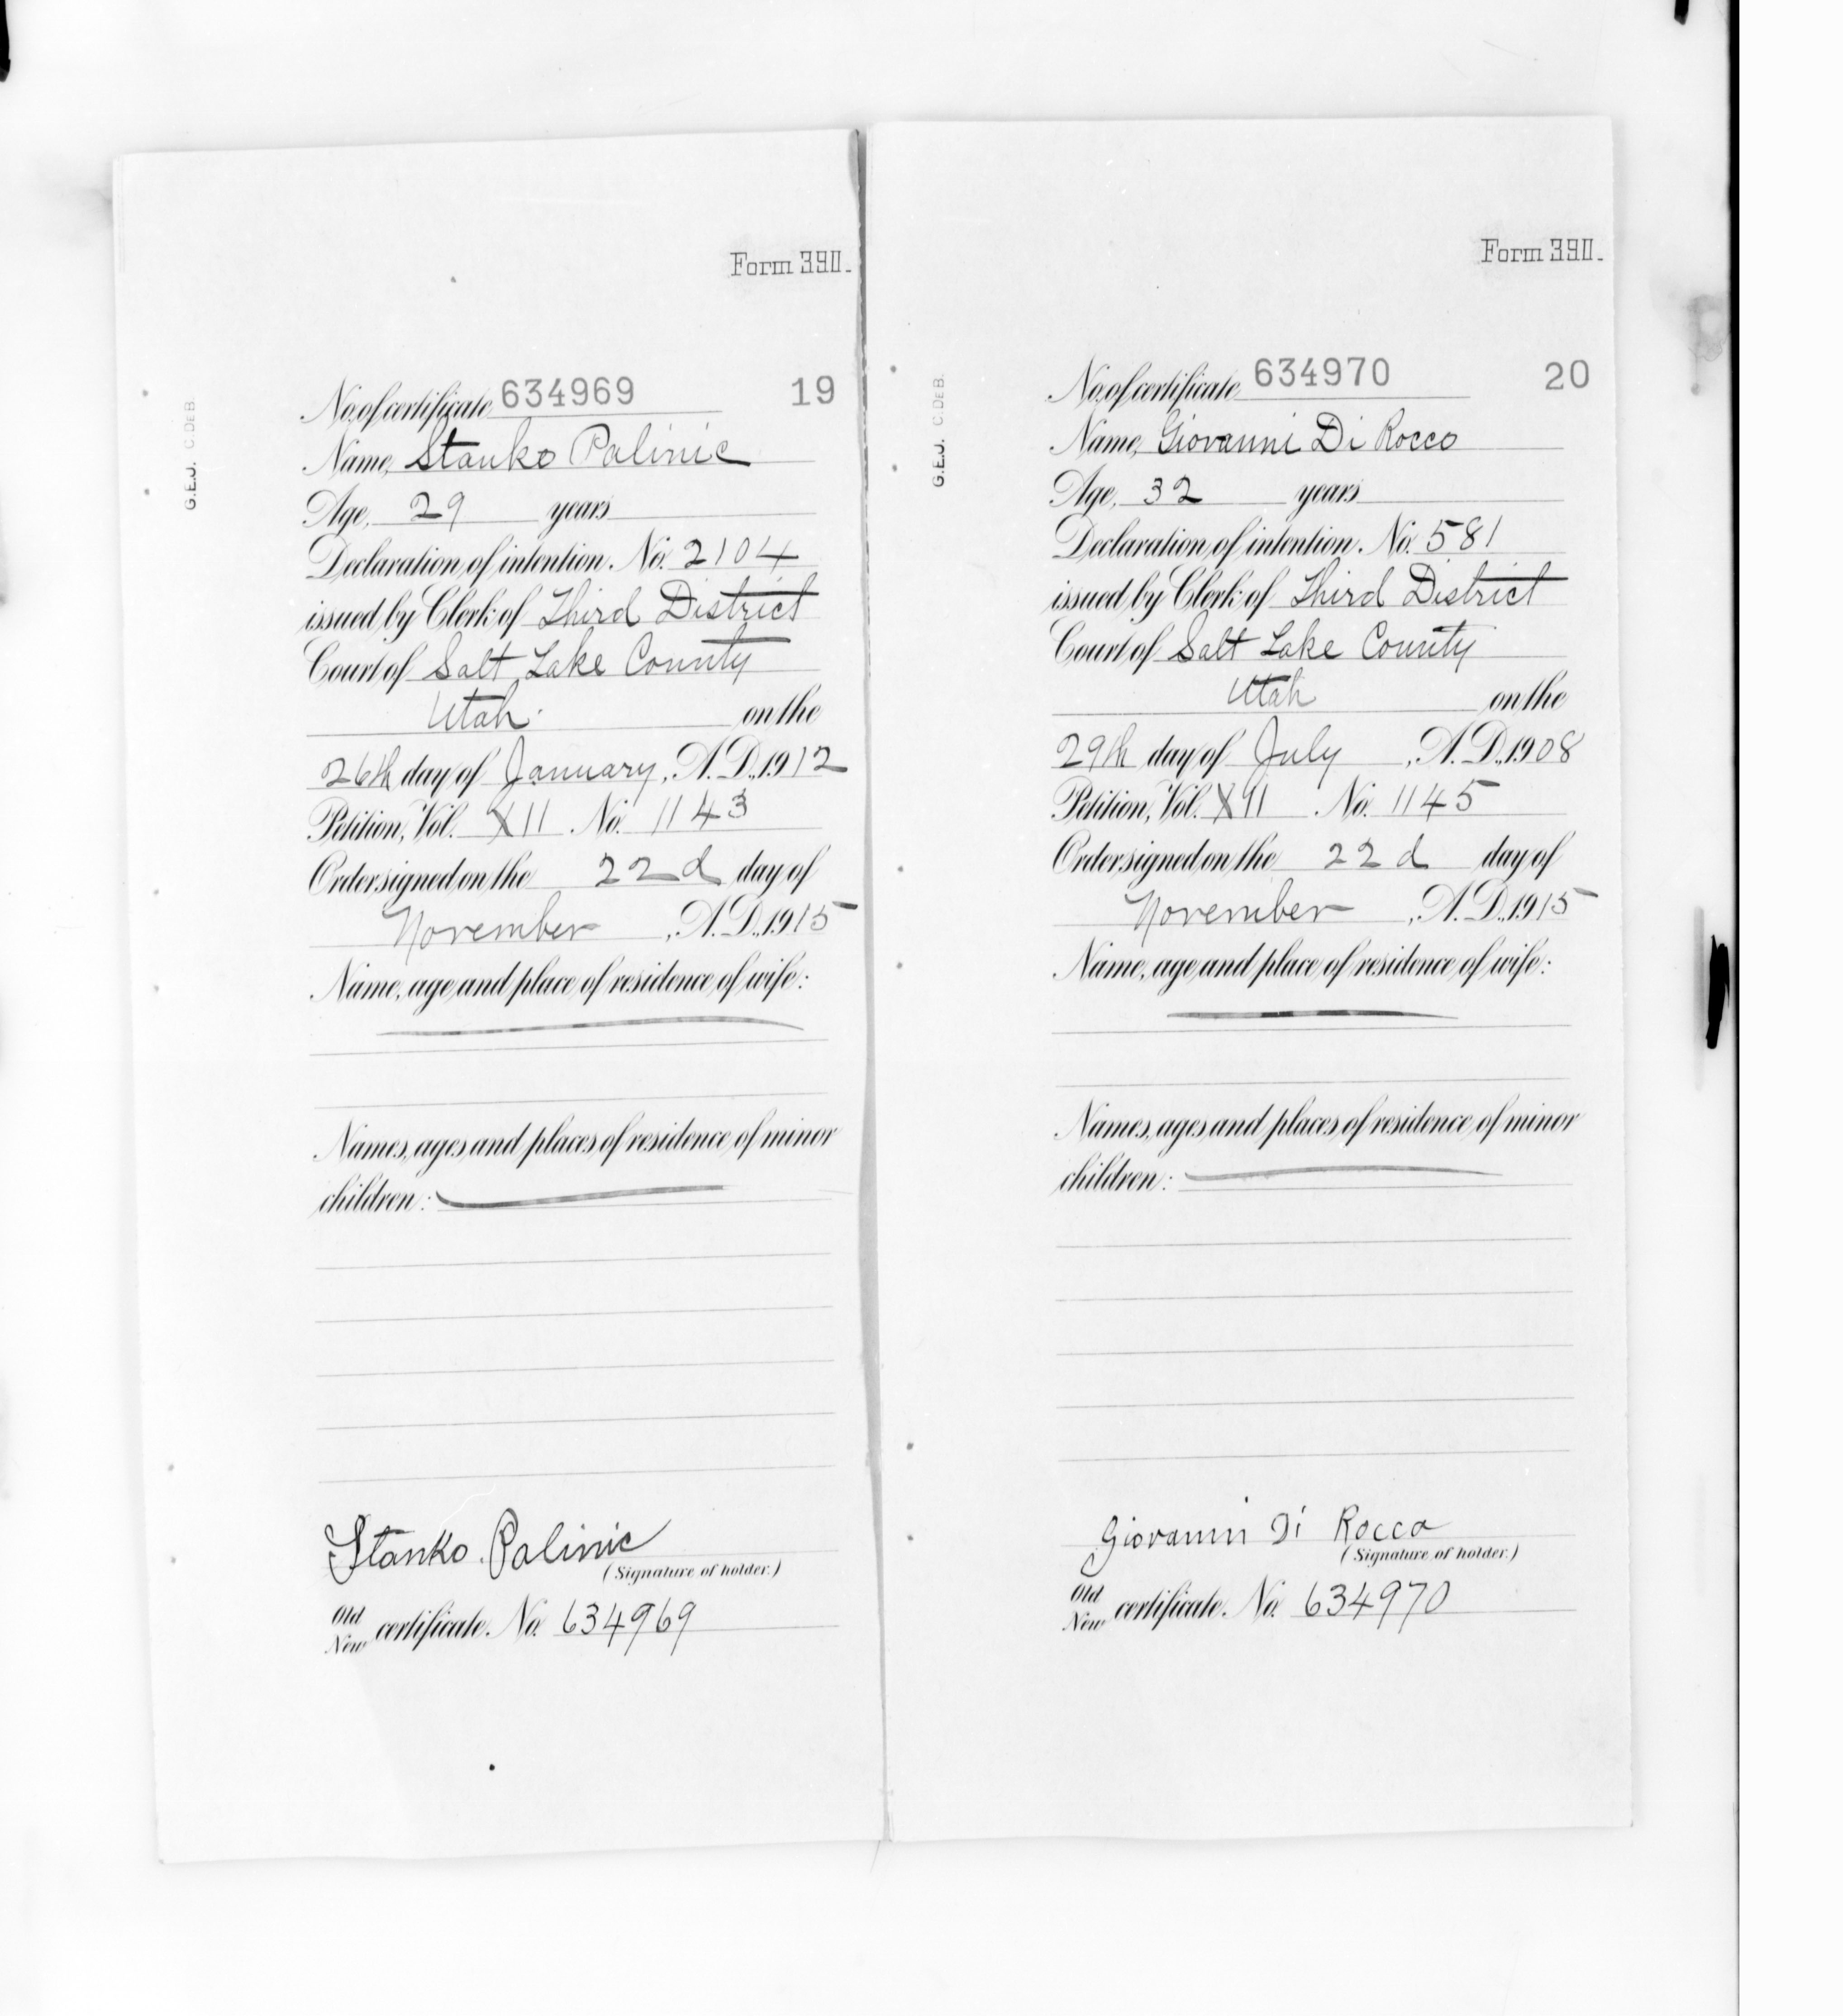 Form 390.
G.E.J. C. DE B.
No. of certificate 634969 19
Name, Stanko Palinic
Age, 29 years
Declaration of intention. No. 2104
issued by Clerk of Third District
Court of Salt Lake County
Utah. on the
26th day of January, A.D., 1912
Petition, Vol. XII No. 1143
Order signed on the 22d day of
November, A.D., 1915
Name, age and place of residence of wife:
Names, ages and places of residence of minor
children:
Stanko Palinic
(Signature of holder.)
Old
New certificate. No. 634969
Form 390.
G.E.J. C. DE B.
No. of certificate 634970 20
Name, Giovanni Di Rocco
Age, 32 years
Declaration of intention. No. 581
issued by Clerk of Third District
Court of Salt Lake County
Utah on the
29th day of July, A.D., 1908
Petition, Vol. XII No. 1145
Order signed on the 22d day of
November, A.D., 1915
Name, age and place of residence of wife:
Names, ages and places of residence of minor
children:
Giovanni Di Rocco
(Signature of holder.)
Old
New certificate. No. 634970